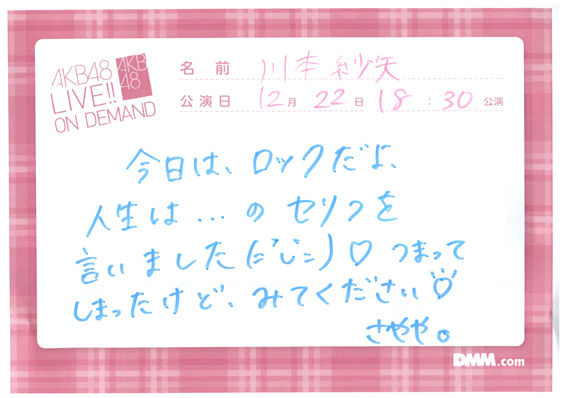 AKB48
LIVE!!
ON DEMAND
AKB
48
名前 川本紗矢
公演日 12月22日18:30公演
今日は、ロックだよ、
人生は...のセリフを
言いました(ﾆﾟじﾆ)♡つまって
しまったけど、みてください♡
さやや。
DMM.com